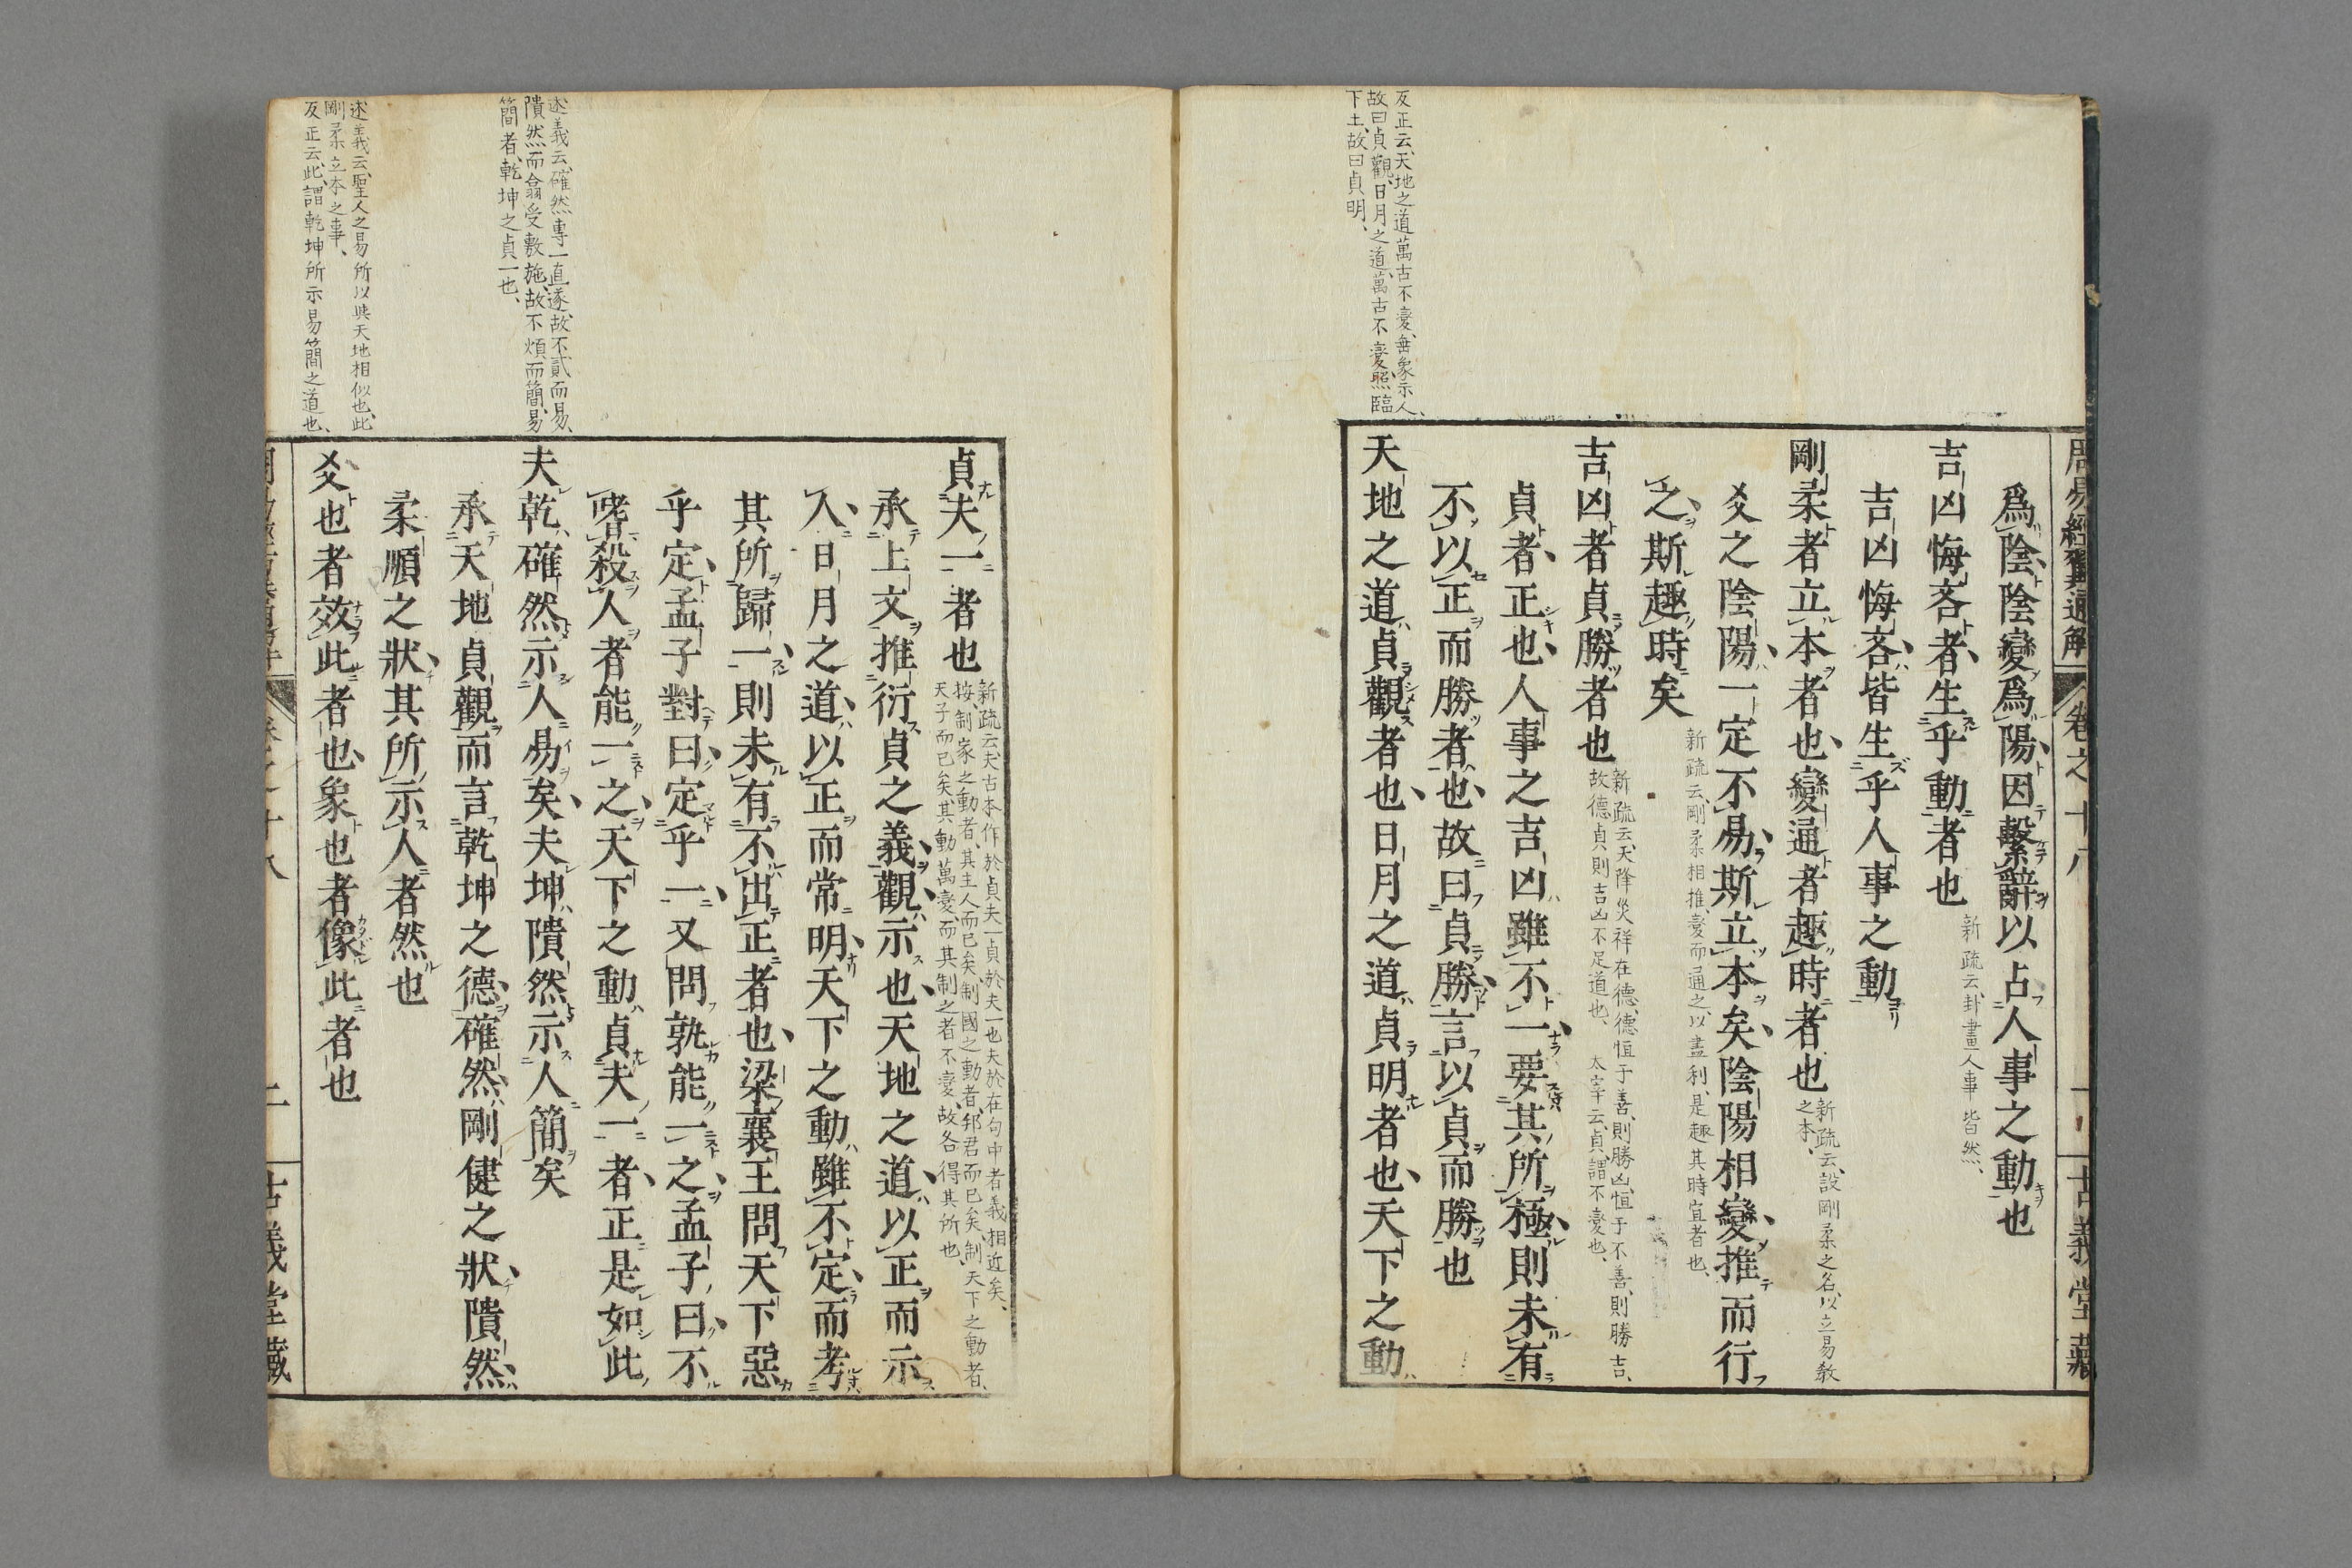 周易經翼通解
卷之十八
古義堂藏
反正云、天地之道萬古不變、垂象示人、
故曰貞觀、日月之道、萬古不變、照臨
下土、故曰貞明、
爲陰陰變爲陽因繫辭以占人事之動也
吉凶悔吝者生乎動者也
新疏云、卦畫人事皆然、
吉凶悔吝皆生乎人事之動
剛柔者立本者也變通者趣時者也
新疏云、設剛柔之名、以立易教
之本、
爻之陰陽一定不易斯立本矣陰陽相變推而行
之斯趣時矣
新疏云、剛柔相推、變而通之、以盡利、是趣其時宜者也、
吉凶者貞勝者也
新疏云、天降災祥在德、德恒于善、則勝凶、恒于不善、則勝吉、
故德貞則吉凶不足道也、 太宰云、貞、謂不變也、
貞者正也人事之吉凶雖不一要其所極則未有
不以正而勝者也故曰貞勝言以貞而勝也
天地之道貞觀者也日月之道貞明者也天下之動
述義云、確然專一直遂、故不貳而易、
隤然而翕受敷施、故不煩而簡、易
簡者、乾坤之貞一也、
述義云、聖人之易所以與天地相似也、此
剛柔立本之事、
反正云、此謂乾坤所示易簡之道也、
貞夫一者也
新疏云、夫古本作於貞夫一貞於夫一也夫於在句中者義相近矣、
按、制家之動者、其主人而已矣、制國之動者、邦君而已矣、制天下之動者、
天子而已矣、其動萬變、而其制之者不變、故各得其所也、
承上文推衍貞之義觀示也天地之道以正而示
人日月之道以正而常明天下之動雖不定而考
其所歸一則未有不出正者也梁襄王問天下惡
乎定孟子對曰定乎一又問孰能一之孟子曰不
嗜殺人者能一之天下之動貞夫一者正是如此
夫乾確然示人易矣夫坤隤然示人簡矣
承天地貞觀而言乾坤之德確然剛健之狀隤然
柔順之狀其所示人者然也
爻也者效此者也象也者像此者也
古義堂藏